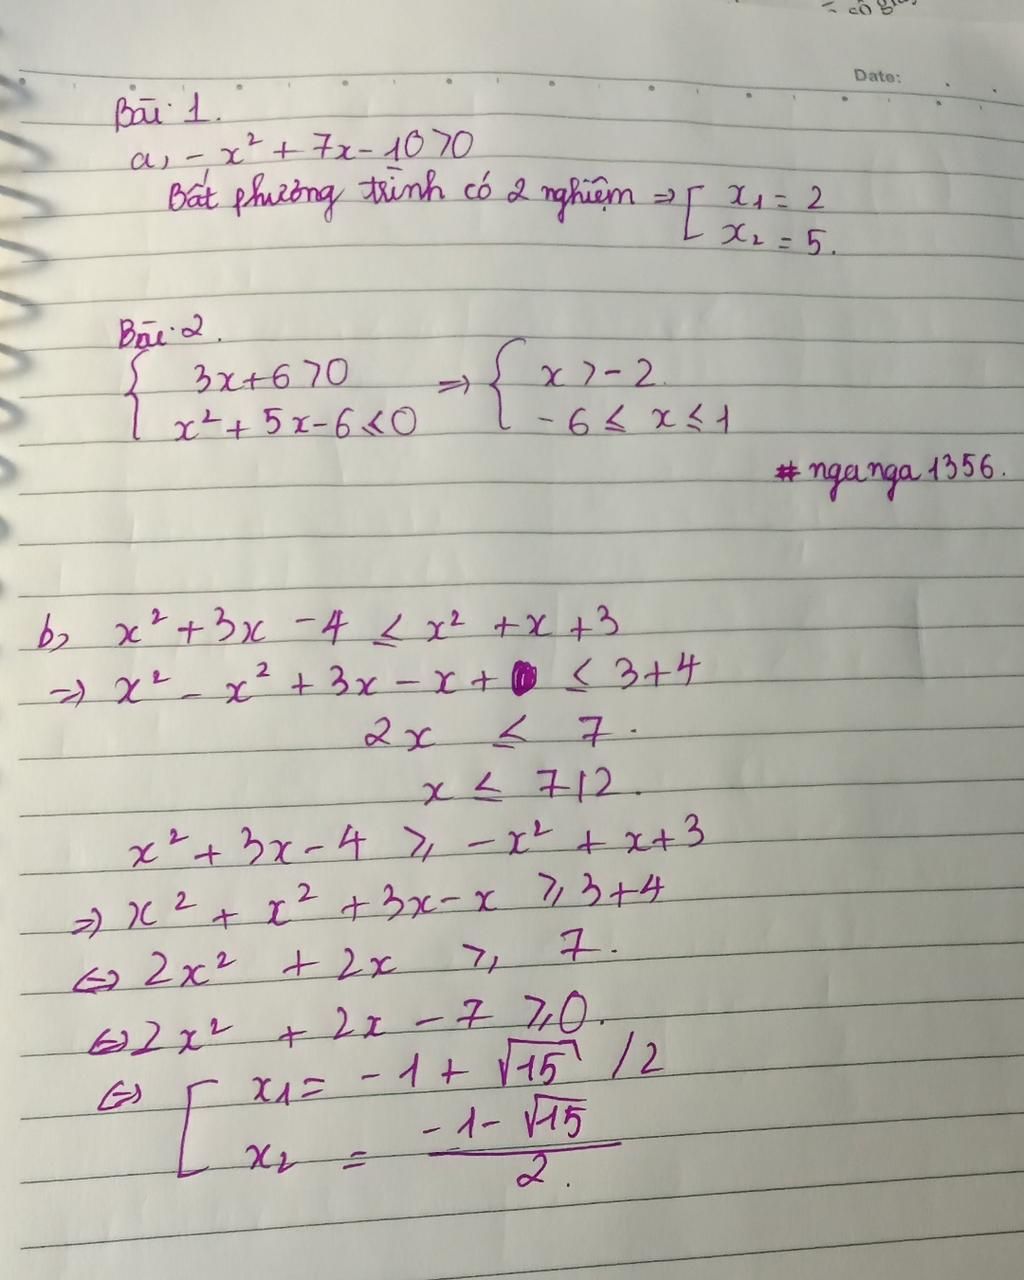 = cô
Date:
Bài 1.
a, - x² + 7x - 10 > 0
Bất phương trình có 2 nghiệm => [ x₁ = 2
x₂ = 5.
Bài 2.
{ 3x + 6 > 0 => { x > -2.
x² + 5x - 6 ≤ 0 - 6 ≤ x ≤ 1
# nganga 1356.
b, x² + 3x - 4 ≤ x² + x + 3
=> x² - x² + 3x - x + ≤ 3 + 4
2x ≤ 7.
x ≤ 7/2.
x² + 3x - 4 ≥ - x² + x + 3
=> x² + x² + 3x - x ≥ 3 + 4
<=> 2x² + 2x ≥ 7.
<=> 2x² + 2x - 7 ≥ 0.
<=> [ x₁ = - 1 + √15 / 2
x₂ = (- 1 - √15) / 2.